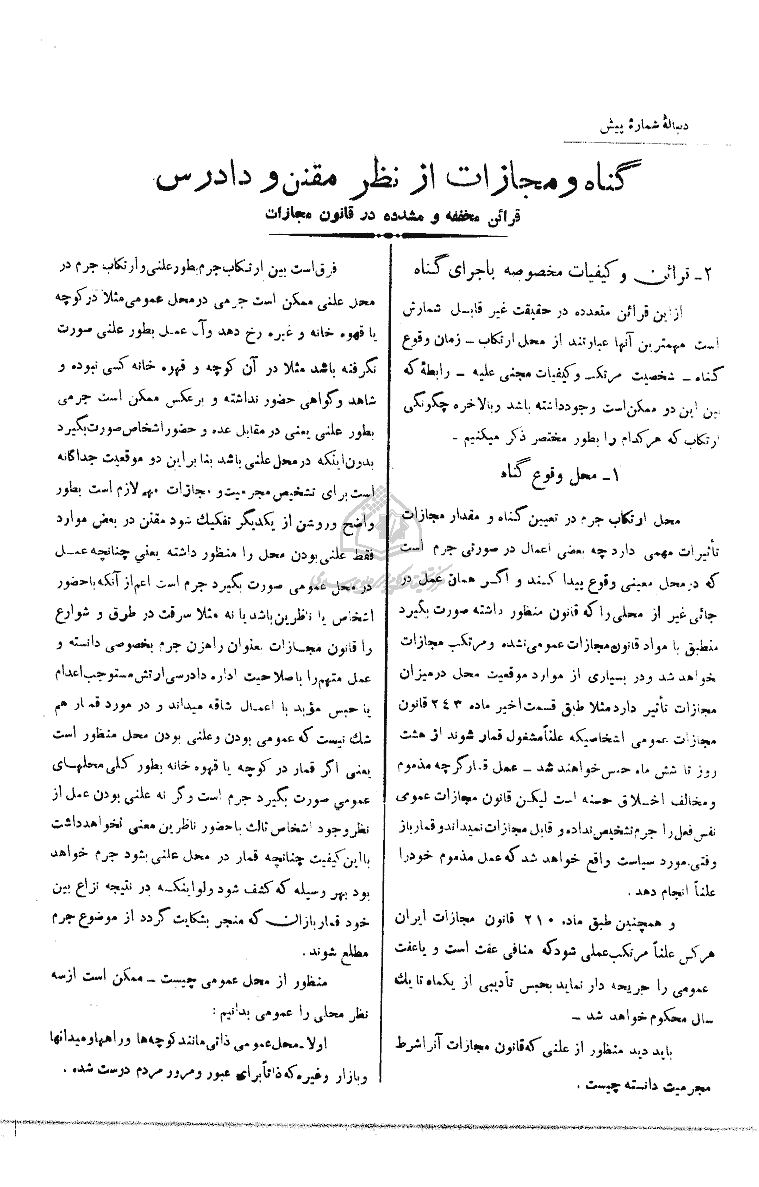 دنبالهٔ شمارهٔ پیش
گناه و مجازات از نظر مقنن و دادرس
قرائن مخففه و مشدده در قانون مجازات
۲- قرائن و کیفیات مخصوصه باجرای گناه
از این قرائن متعدده در حقیقت غیر قابل شمارش
است مهمترین آنها عبارتند از محل ارتکاب – زمان وقوع
گناه – شخصیت مرتکب و کیفیات مجنی علیه – رابطهٔ که
بین این دو ممکن است وجود داشته باشد و بالاخره چگونگی
ارتکاب که هر کدام را بطور مختصر ذکر میکنیم –
۱- محل وقوع گناه
محل ارتکاب جرم در تعیین گناه و مقدار مجازات
تأثیرات مهمی دارد چه بعضی اعمال در صورتی جرم است
که در محل معینی وقوع پیدا کنند و اگر همان عمل در
جائی غیر از محلی را که قانون منظور داشته صورت بگیرد
منطبق با مواد قانون مجازات عمومی نشده و مرتکب مجازات
خواهد شد و در بسیاری از موارد موقعیت محل در میزان
مجازات تأثیر دارد مثلا طبق قسمت اخیر ماده ۲۴۳ قانون
مجازات عمومی اشخاصیکه علناً مشغول قمار شوند از هشت
روز تا شش ماه حبس خواهند شد – عمل قمار گرچه مذموم
و مخالف اخلاق حسنه است لیکن قانون مجازات عمومی
نفس فعل را جرم تشخیص نداده و قابل مجازات نمیداند و قمارباز
وقتی مورد سیاست واقع خواهد شد که عمل مذموم خود را
علناً انجام دهد .
و همچنین طبق ماده ۲۱۰ قانون مجازات ایران
هر کس علناً مرتکب عملی شود که منافی عفت است و یا عفت
عمومی را جریحه دار نماید بحبس تأدیبی از یکماه تا یك
سال محکوم خواهد شد –
باید دید منظور از علنی که قانون مجازات آنرا شرط
مجرمیت دانسته چیست .
فرق است بین ارتکاب جرم بطور علنی و ارتکاب جرم در
محل علنی ممکن است جرمی در محل عمومی مثلا در کوچه
یا قهوه خانه و غیره رخ دهد و آن عمل بطور علنی صورت
نگرفته باشد مثلا در آن کوچه و قهوه خانه کسی نبوده و
شاهد و گواهی حضور نداشته و برعکس ممکن است جرمی
بطور علنی یعنی در مقابل عده و حضور اشخاص صورت بگیرد
بدون اینکه در محل علنی باشد بنا بر این دو موقعیت جداگانه
است برای تشخیص مجرمیت و مجازات مهم لازم است بطور
واضح و روشن از یکدیگر تفکیك شود مقنن در بعض موارد
فقط علنی بودن محل را منظور داشته یعنی چنانچه عمل
در محل عمومی صورت بگیرد جرم است اعم از آنکه با حضور
اشخاص یا ناظرین باشد یا نه مثلا سرقت در طرق و شوارع
را قانون مجازات بعنوان راهزن جرم بخصوصی دانسته و
عمل متهم را با صلاحیت اداره دادرسی ارتش مستوجب اعدام
یا حبس مؤبد با اعمال شاقه میداند و در مورد قمار هم
شك نیست که عمومی بودن و علنی بودن محل منظور است
یعنی اگر قمار در کوچه یا قهوه خانه بطور کلی محلهای
عمومی صورت بگیرد جرم است و گر نه علنی بودن عمل از
نظر وجود اشخاص ثالث یا حضور ناظرین معنی نخواهد داشت
با این کیفیت چنانچه قمار در محل علنی بشود جرم خواهد
بود بهر وسیله که کشف شود ولو اینکه در نتیجه نزاع بین
خود قماربازان که منجر بشکایت گردد از موضوع جرم
مطلع شوند .
منظور از محل عمومی چیست – ممکن است از سه
نظر محلی را عمومی بدانیم :
اولا – محل عمومی ذاتی مانند کوچه‌ها و راهها و میدانها
و بازار و غیره که ذاتاً برای عبور و مرور مردم درست شده .